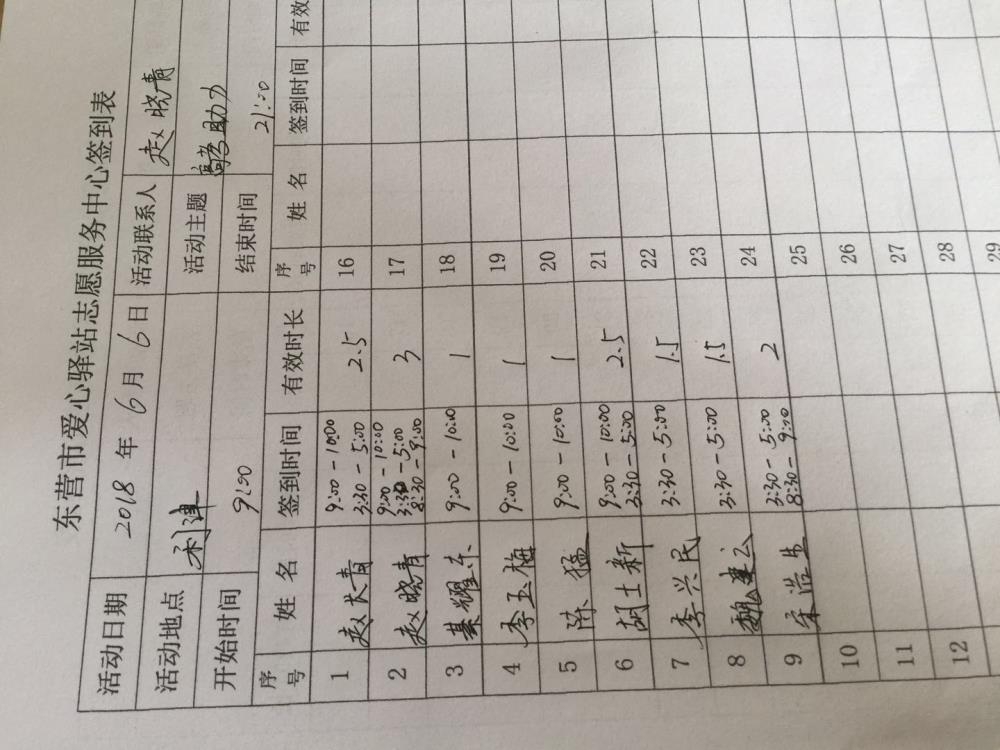 东营市爱心驿站志愿服务中心签到表
活动日期 2018 年 6 月 6 日 活动联系人 赵晓青
活动地点 利津 活动主题 高考助力
开始时间 9:00 结束时间 21:00
序号 姓名 签到时间 有效时长 序号 姓名 签到时间 有效
1 赵大青 9:00-10:00 3:30-5:00 2.5 16
2 赵晓青 9:00-10:00 3:30-5:00 8:30-9:00 3 17
3 綦耀东 9:00-10:00 1 18
4 李玉梅 9:00-10:00 1 19
5 陈猛 9:00-10:00 1 20
6 胡士新 9:00-10:00 3:30-5:00 2.5 21
7 李兴民 3:30-5:00 1.5 22
8 魏建云 3:30-5:00 1.5 23
9 宋浩生 3:30-5:00 8:30-9:00 2 24
10 25
11 26
12 27
28
29